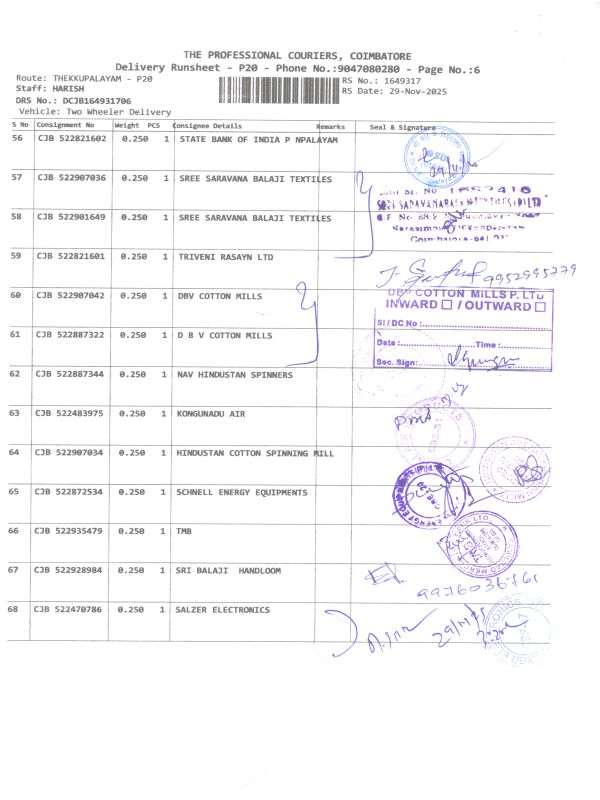 THE PROFESSIONAL COURIERS, COIMBATORE
Delivery Runsheet - P20 - Phone No.:9047080280 - Page No.:6
Route: THEKKUPALAYAM - P20
RS No.: 1649317
Staff: HARISH
RS Date: 29-Nov-2025
DRS No.: DCJB164931706
Vehicle: Two Wheeler Delivery
S No Consignment No Weight PCS Consignee Details Remarks Seal & Signature
56 CJB 522821602 0.250 1 STATE BANK OF INDIA P NPALAYAM
57 CJB 522907036 0.250 1 SREE SARAVANA BALAJI TEXTILES
58 CJB 522901649 0.250 1 SREE SARAVANA BALAJI TEXTILES
Coimbatore-641
59 CJB 522821601 0.250 1 TRIVENI RASAYN LTD
9952995779
60 CJB 522907042 0.250 1 DBV COTTON MILLS
DBV COTTON MILLS P. LTD
INWARD / OUTWARD
SI / DC No :
61 CJB 522887322 0.250 1 D B V COTTON MILLS
Date : Time :
Sec. Sign:
62 CJB 522887344 0.250 1 NAV HINDUSTAN SPINNERS
63 CJB 522483975 0.250 1 KONGUNADU AIR
64 CJB 522907034 0.250 1 HINDUSTAN COTTON SPINNING MILL
65 CJB 522872534 0.250 1 SCHNELL ENERGY EQUIPMENTS
66 CJB 522935479 0.250 1 TMB
67 CJB 522928984 0.250 1 SRI BALAJI HANDLOOM
9976036761
68 CJB 522470786 0.250 1 SALZER ELECTRONICS
29/11/25